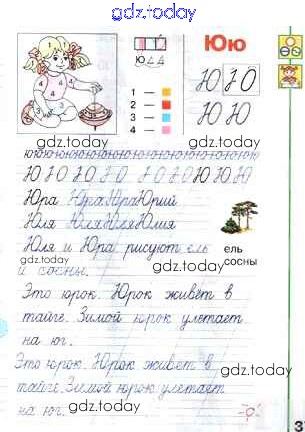 gdz.today
Юю
ю
1 —
2 —
3 —
4 —
4
1
4
3
Ю Ю
Ю Ю
gdz.today
gdz.today
ююююююююююююююююю
Ю Ю Ю Ю Ю Ю Ю Ю Ю Ю Ю
Юра Юра Юра Юрий
Юля Юля Юля Юлия
gdz.today
Юля и Юра рисуют ель
и сосны.
ель
сосны
gdz.today
gdz.today
Это юрок. Юрок живёт в
тайге. Зимой юрок улетает
на юг.
gdz.today
Это юрок. Юрок живёт в
тайге. Зимой юрок улетает
на юг.
gdz.today
3